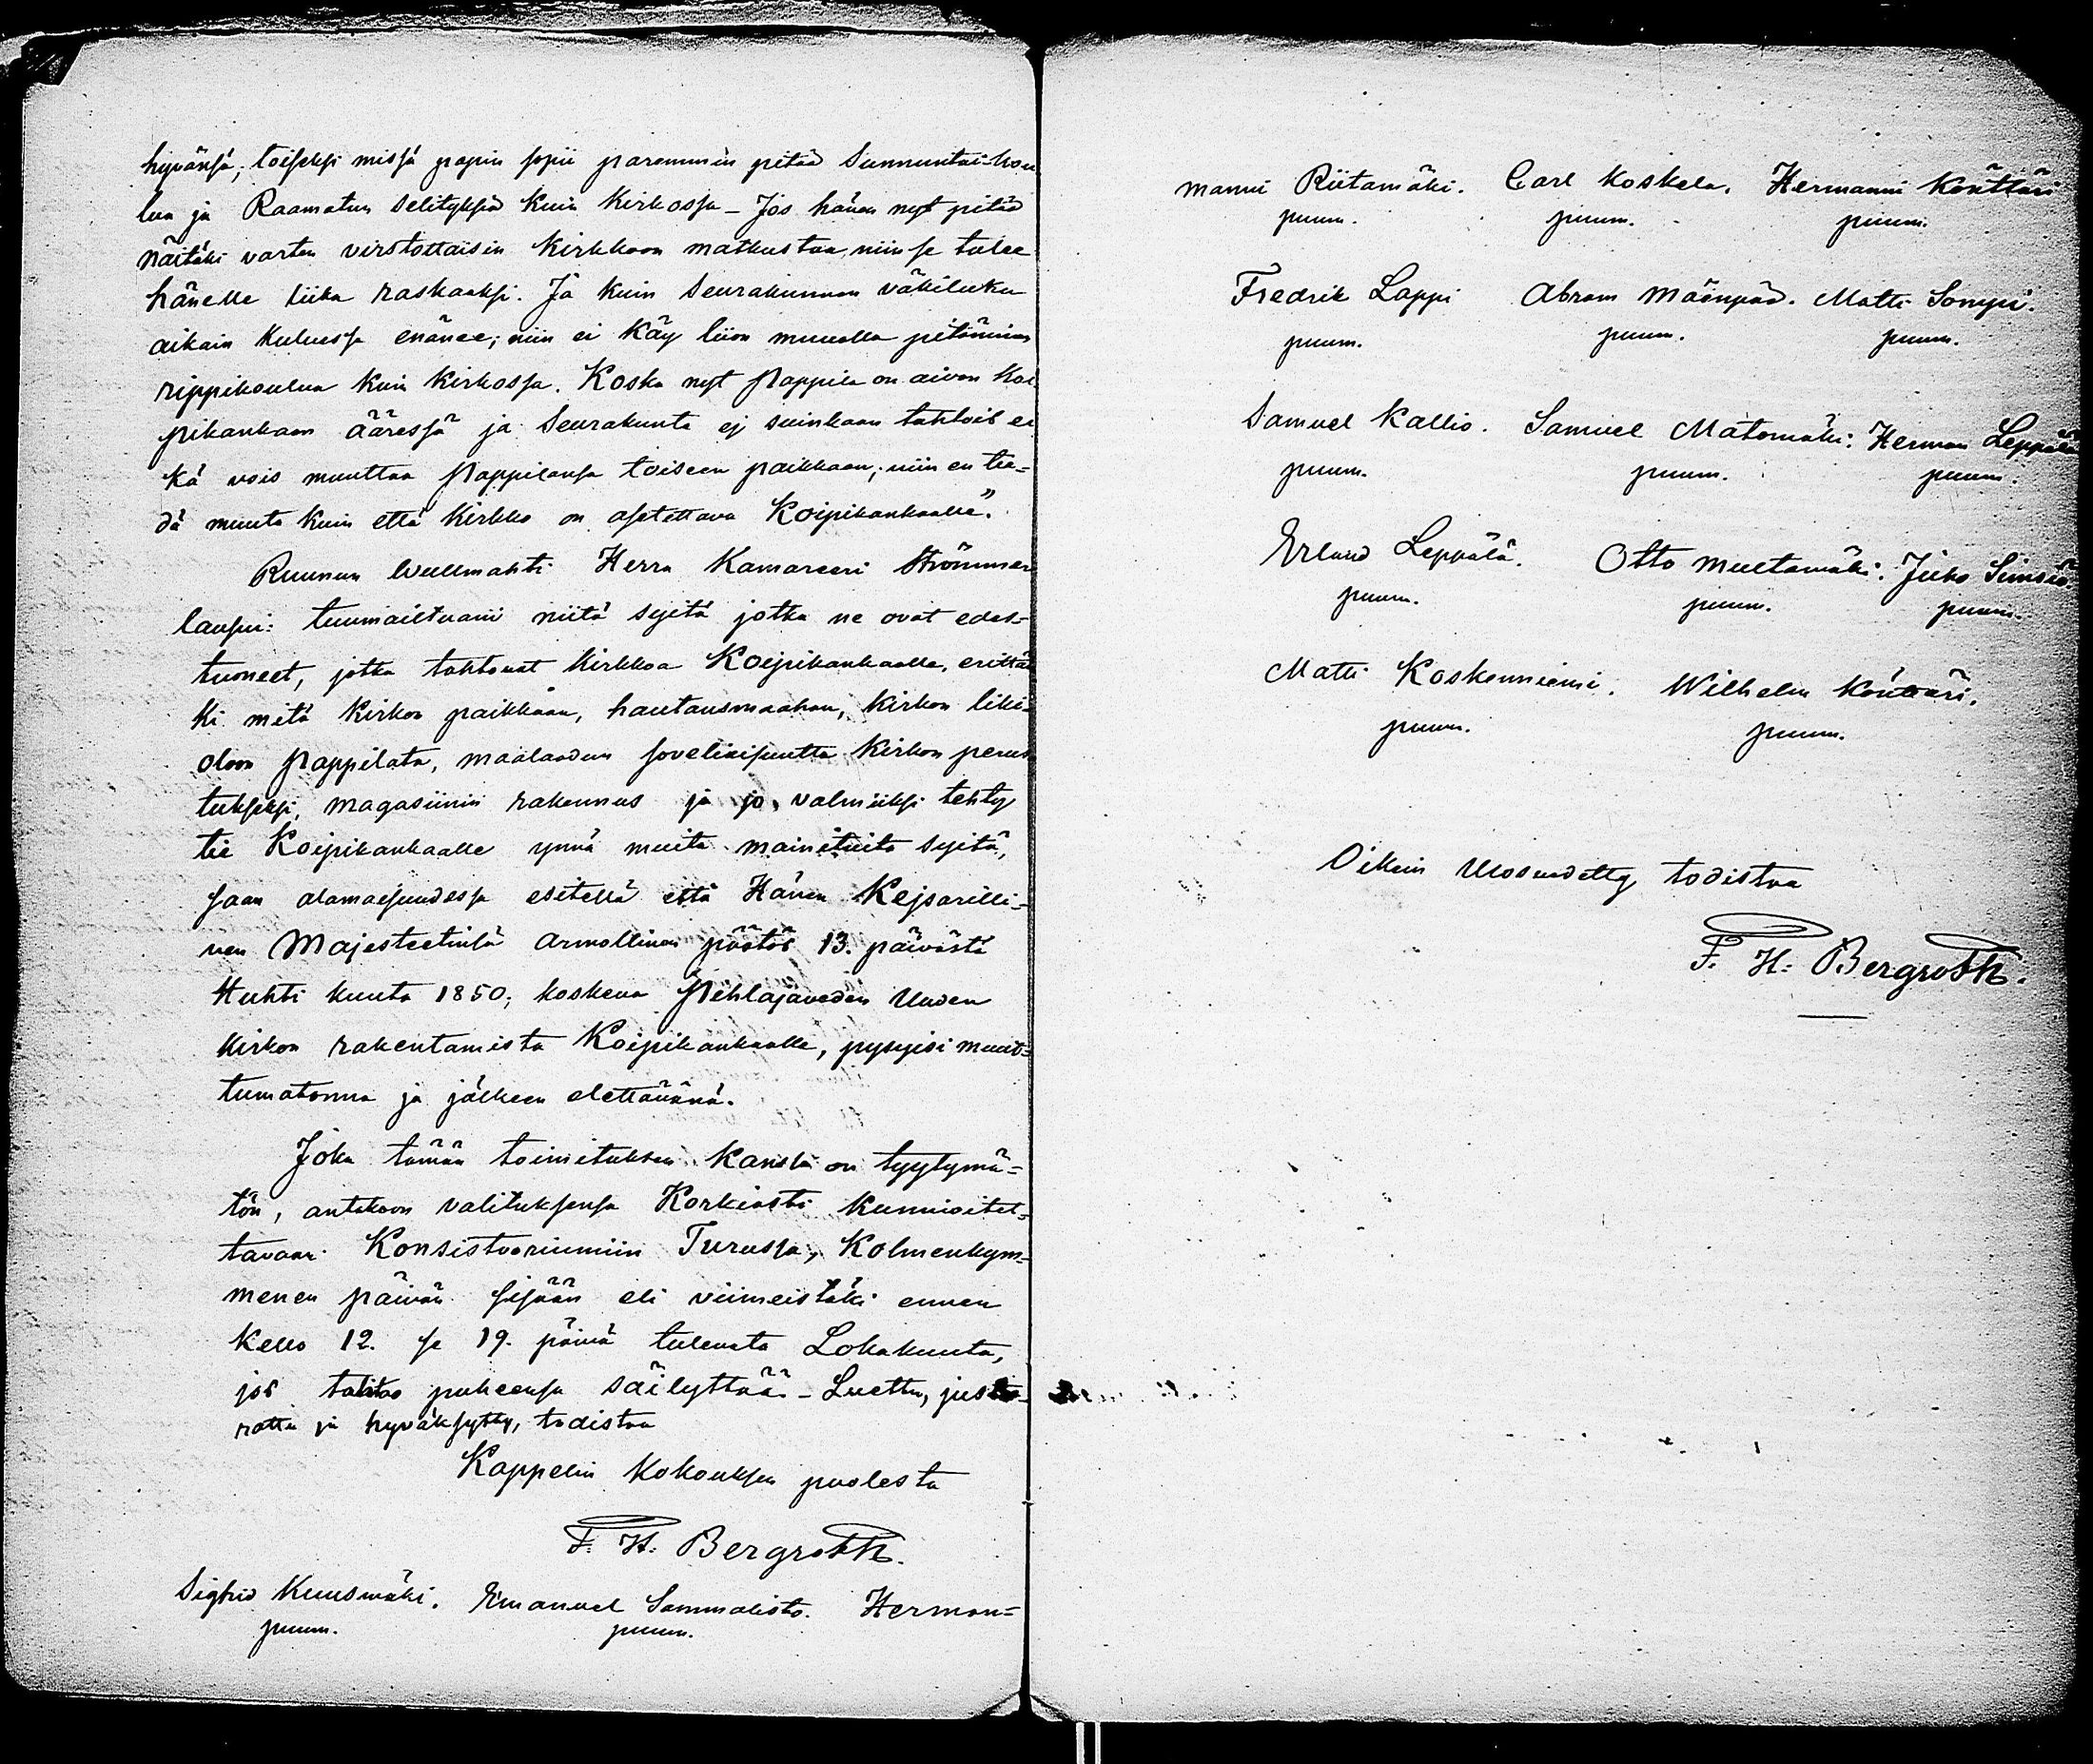 hyvänsä; toiseksi missä papin sopii paremmin pitää Sunnuntai-kou
lua ja Raamatun Selityksiä kuin Kirkossa – Jos hänen nyt pitää
näitäki varten virstottaisin Kirkkoon matkustaa, niin se tulee
hänelle liika raskaaksi. Ja kuin Seurakunnan väkiluku
aikain kuluessa enänee; niin ei käy liion muualla pitäminen
rippikoulua kuin Kirkossa. Koska nyt Pappila on aivan Koi
pikankaan ääressä ja Seurakunta ej suinkaan tahtois ei
kä vois muuttaa Pappilansa toiseen paikkaan; niin en tie=
dä muuta kuin että Kirkko on asetettava Koipikankaalle".
Ruunun Wullmahti Herra Kamareeri Strömmer
lausui: tuumailtuani niitä syitä jotka ne ovat edes=
tuoneet, jotka tahtovat Kirkkoa Koipikankaalle, erittäi
ki mitä Kirkon paikkaan, hautausmaahan, Kirkon liki=
oloon Pappilata, maalaadun soveliaisuutta Kirkon perus
tukseksi, magasiinin rakennus ja jo valmiiksi tehty
tie Koipikankaalle ynnä muita mainituita syitä,
saan alamaisuudessa esitellä että Hänen Kejsarilli=
nen Majesteetinsä armollinen päätös 13. päivästä
Huhti kuuta 1850, koskeva Pihlajaveden Uuden
Kirkon rakentamista Koipikankaalle, pysyisi muut=
tumatonna ja jälkeen elettävänä.
Joka tämän toimituksen kanssa on tyytymä=
tön, antakoon valituksensa Korkiasti Kunnioitet=
tavaan Konsistooriumiin Turussa, Kolmenkym=
menen päivän sisään eli viimeistäki ennen
Kello 12. se 19. päivä tulevata Lokakuuta,
jos tahtoo puheensa säilyttää – Luettu, juste=
rattu ja hyväksytty, todistaa
Kappelin Kokouksen puolesta
F. H. Bergroth.
Sigfrid Kuusmäki. Emanuel Sammalisto. Herman=
puum. puum.
manni Riitamäki. Carl Koskela. Hermanni Könttäri
puum. puum. puum.
Fredrik Lappi Abram Mäenpää. Matti Sompi.
puum. puum. puum.
Samuel Kallio. Samuel Matomäki. Herman Leppälä
puum. puum. puum.
Erland Leppälä. Otto Multamäki. Juho Simsiö
puum. puum. puum.
Matti Koskenniemi. Wilhelm Könttäri.
puum. puum.
Oikein Uloskudottu todistaa
F. H. Bergroth.